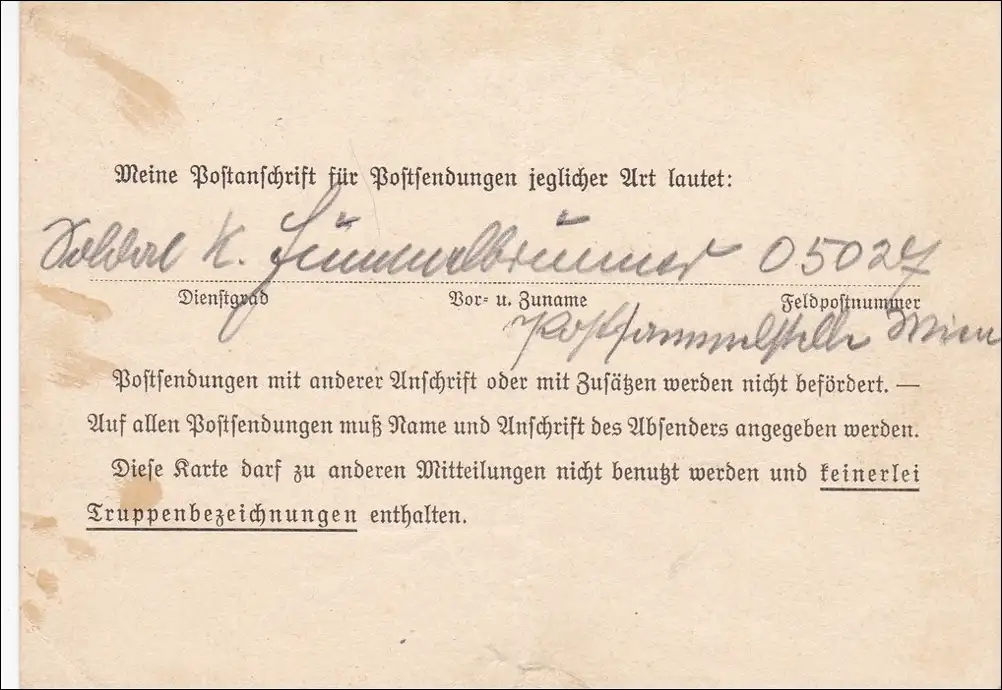 Meine Postanschrift für Postsendungen jeglicher Art lautet:
Soldat K. Hümmelbrunner 05027
Dienstgrad Vor- u. Zuname Feldpostnummer
Postsammelstelle Wien
Postsendungen mit anderer Anschrift oder mit Zusätzen werden nicht befördert. —
Auf allen Postsendungen muß Name und Anschrift des Absenders angegeben werden.
Diese Karte darf zu anderen Mitteilungen nicht benutzt werden und keinerlei
Truppenbezeichnungen enthalten.